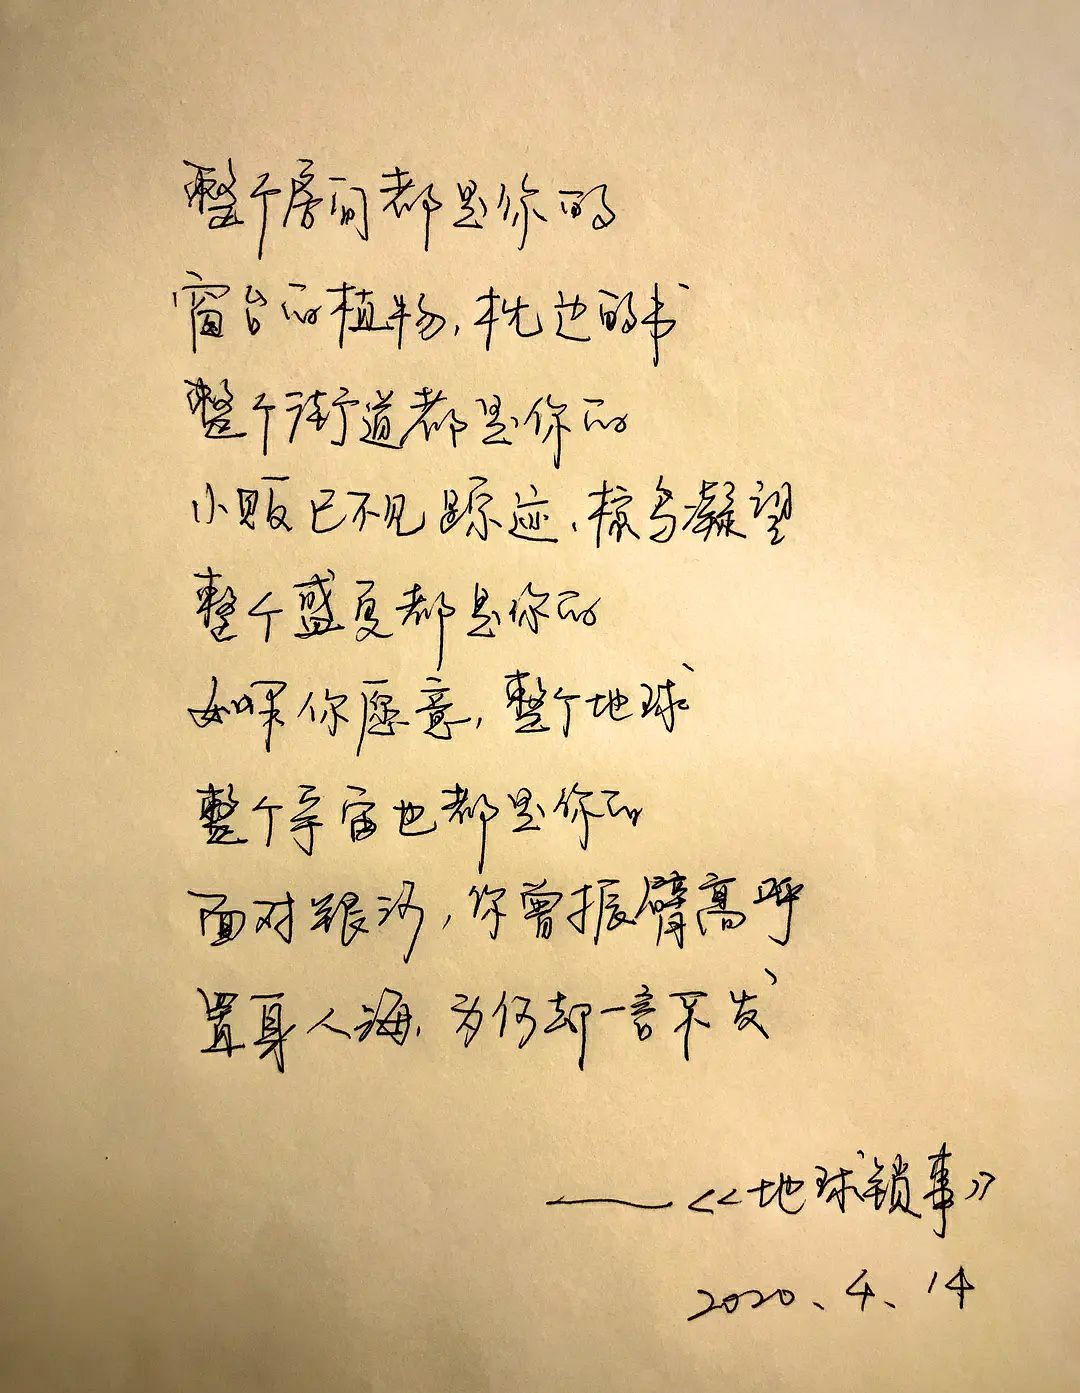 整个房间都是你的
窗台的植物,枕边的书
整个街道都是你的
小贩已不见踪迹,候鸟凝望
整个盛夏都是你的
如果你愿意,整个地球
整个宇宙也都是你的
面对艰沙,你曾振臂高呼
置身人海,为何却一言不发
——<<地球锁事>>
2020、4、14